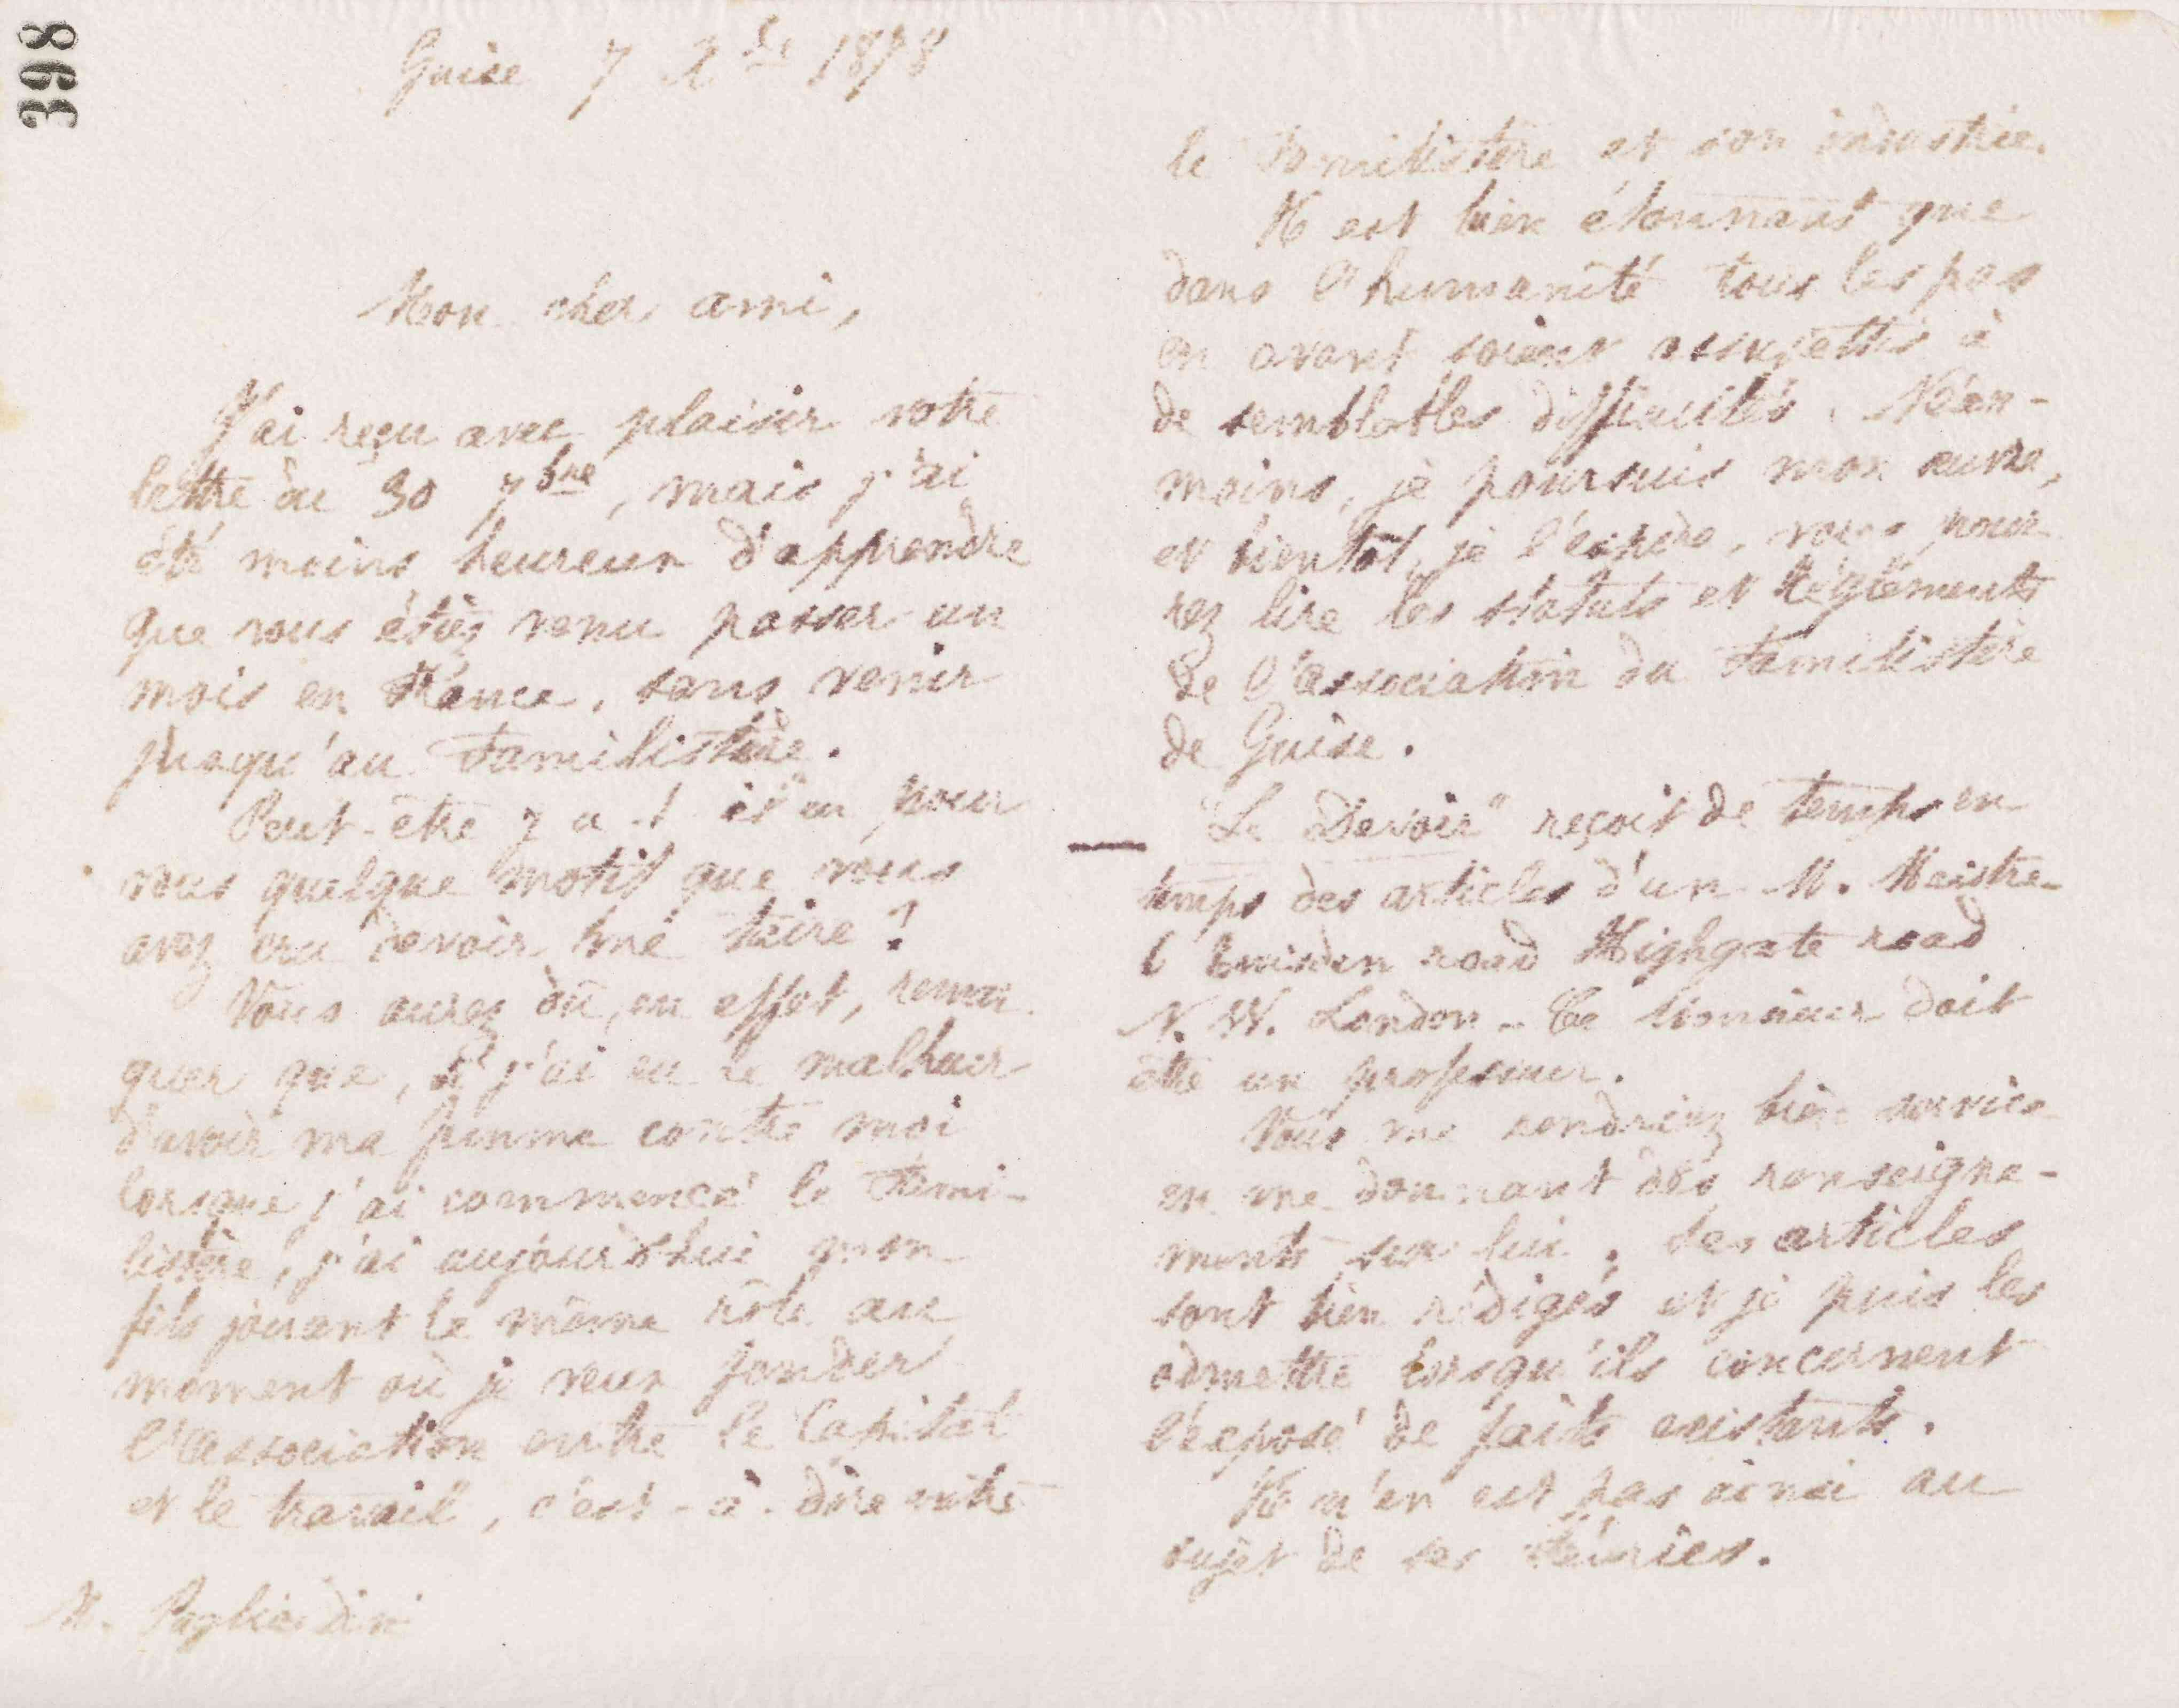 398
Guise 7 Xbre 1878
Mon cher ami,
J'ai reçu avec plaisir votre
lettre du 30 7bre, mais j'ai
été moins heureux d'apprendre
que vous étiez venu passer un
mois en France, sans venir
jusqu'au Familistère.
Peut-être y a-t-il eu pour
vous quelque motif que vous
avez cru devoir me taire ?
Vous aurez dû, en effet, remar-
quer que, si j'ai eu le malheur
d'avoir ma femme contre moi
lorsque j'ai commencé le Fami-
listère, j'ai aujourd'hui mon
fils jouant le même rôle au
moment où je veux fonder
l'association entre le Capital
et le travail, c'est-à-dire entre
M. Pagliardini
le Familistère et son industrie.
Il est bien étonnant que
dans l'humanité tous les pas
en avant soient assujettis à
de semblables difficultés. Néan-
moins, je poursuis mon œuvre,
et bientôt, je l'espère, vous pour-
rez lire les statuts et règlements
de l'association du Familistère
de Guise.
"Le Devoir" reçoit de temps en
temps des articles d'un M. Maistre
6 road Highgate road
N. W. London - Ce Monsieur doit
être un professeur.
Vous me rendriez bien service
en me donnant des renseigne-
ments sur lui. Ses articles
sont bien rédigés et je puis les
admettre lorsqu'ils concernent
l'exposé de faits existants.
Il n'en est pas ainsi au
sujet de ses théories.